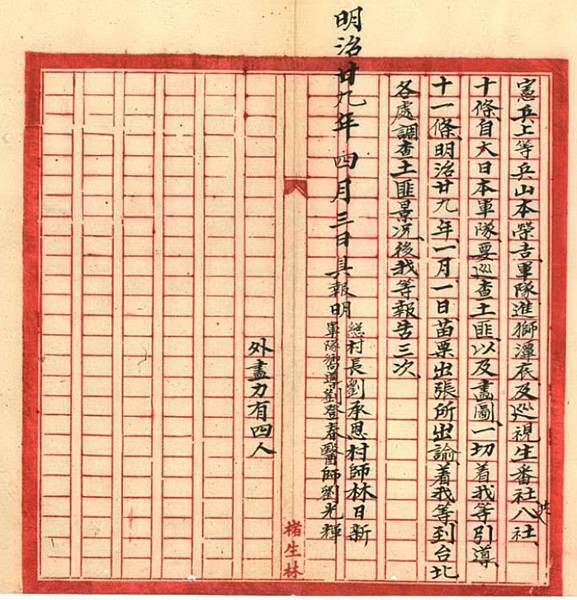 憲兵上等兵山本榮吉軍隊進獅潭底及巡視生番社八社
十條自大日本軍隊要巡查土匪以及畫圖一切着我等引導
十一條明治廿九年一月一日苗栗出張所出諭着我等到台北
各處調查土匪景况後我等報告三次
明治廿九年四月三日具報明
總村長劉承恩村師林日新
軍隊嚮導劉登春醫師劉光輝
外盡力有四人
楮生林